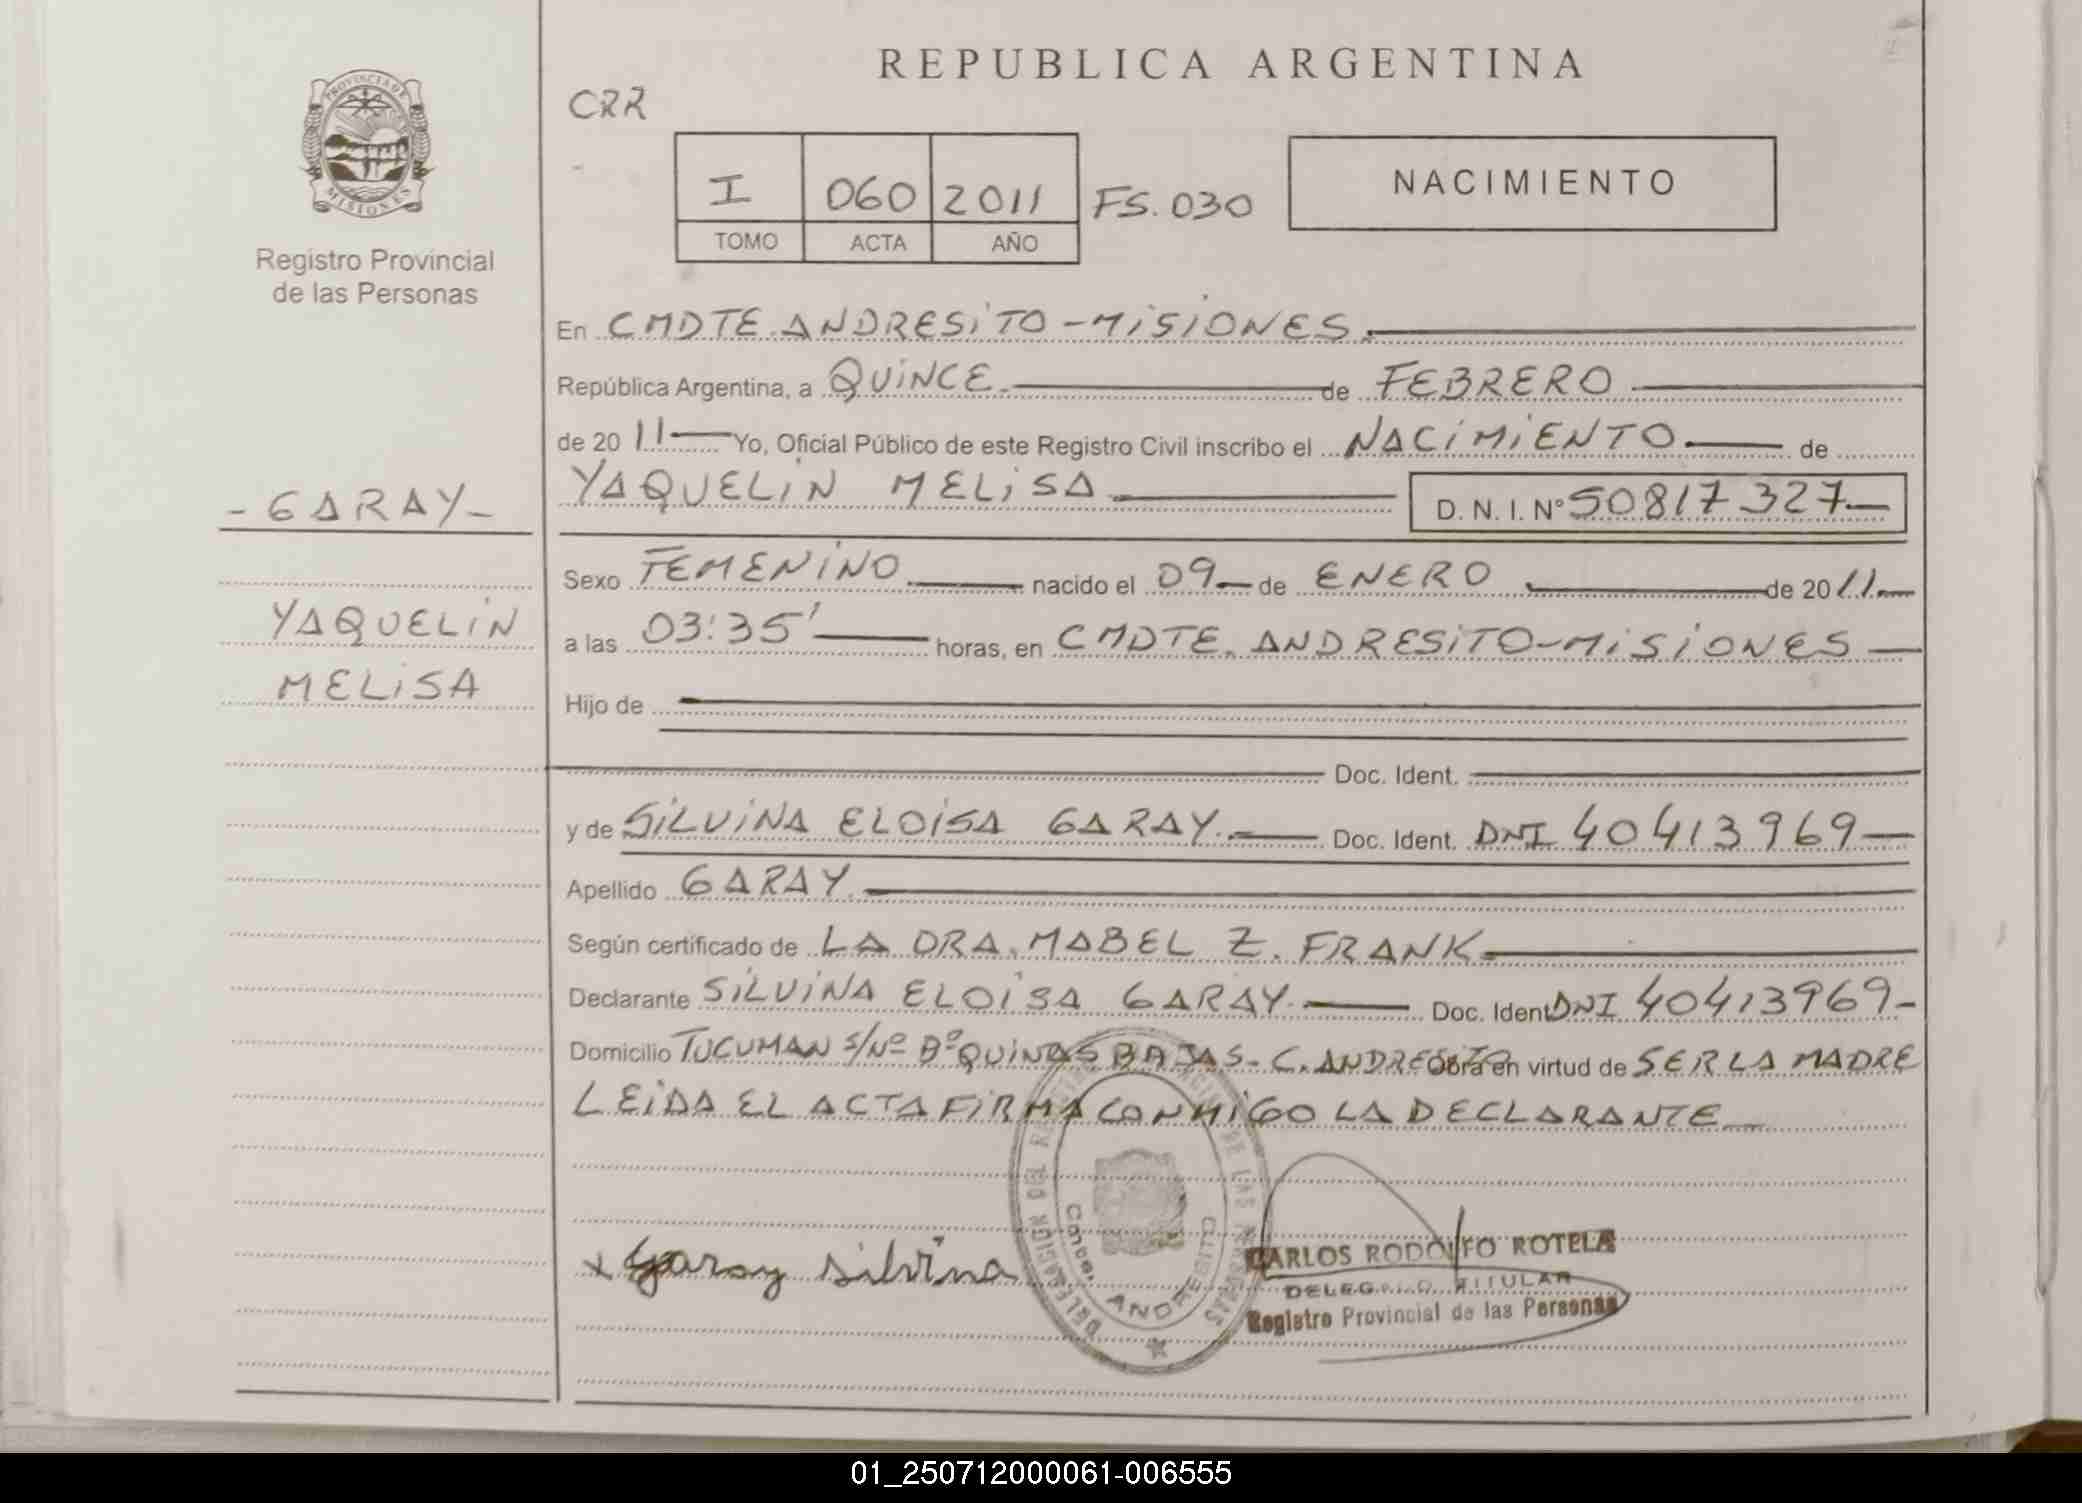 REPUBLICA ARGENTINA
PROVINCIA DE
MISIONES
Registro Provincial
de las Personas
CRR
I 060 2011 FS. 030
TOMO ACTA AÑO
NACIMIENTO
En CMDTE. ANDRESiTO - MiSiONES.
República Argentina, a QUiNCE de FEBRERO
de 2011 Yo, Oficial Público de este Registro Civil inscribo el NACiMiENTO de
YAQUELiN MELiSA D. N. I. Nº 50817327
- GARAY -
YAQUELiN
MELiSA
Sexo FEMENiNO nacido el 09 de ENERO de 2011
a las 03:35' horas, en CMDTE. ANDRESiTO-MiSiONES
Hijo de
Doc. Ident.
y de SiLViNA ELOiSA GARAY. Doc. Ident. DNI 40413969
Apellido GARAY.
Según certificado de LA DRA. MABEL Z. FRANK
Declarante SiLViNA ELOiSA GARAY. Doc. Ident DNI 40413969
Domicilio TUCUMAN S/Nº Bº QUiNAS BAJAS - C. ANDRESiTO Obra en virtud de SER LA MADRE
LEiDA EL ACTA FiRMA CONMiGO LA DECLARANTE
x Garay silvina
DELEGACION DEL DE LAS PERSONAS
ANDRESITO
CARLOS RODOLFO ROTELA
DELEGADO TITULAR
Registro Provincial de las Personas
01_250712000061-006555